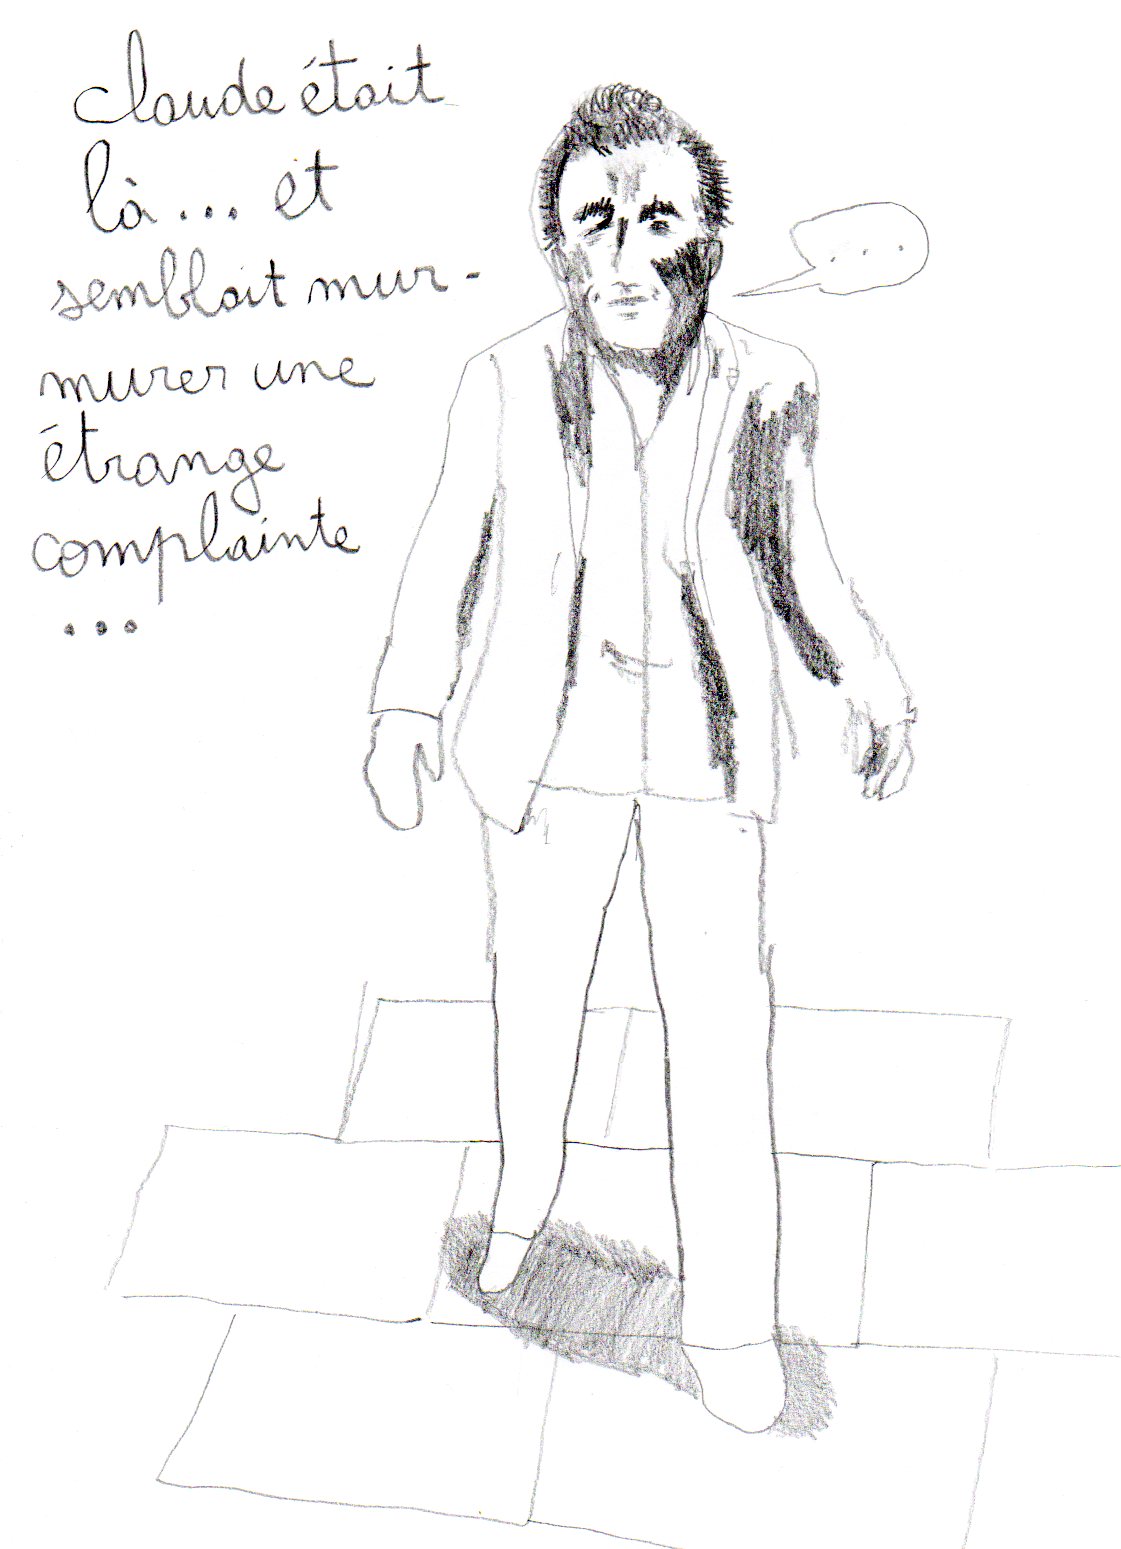 claude était
là... et
semblait mur-
murer une
étrange
complainte
...
...